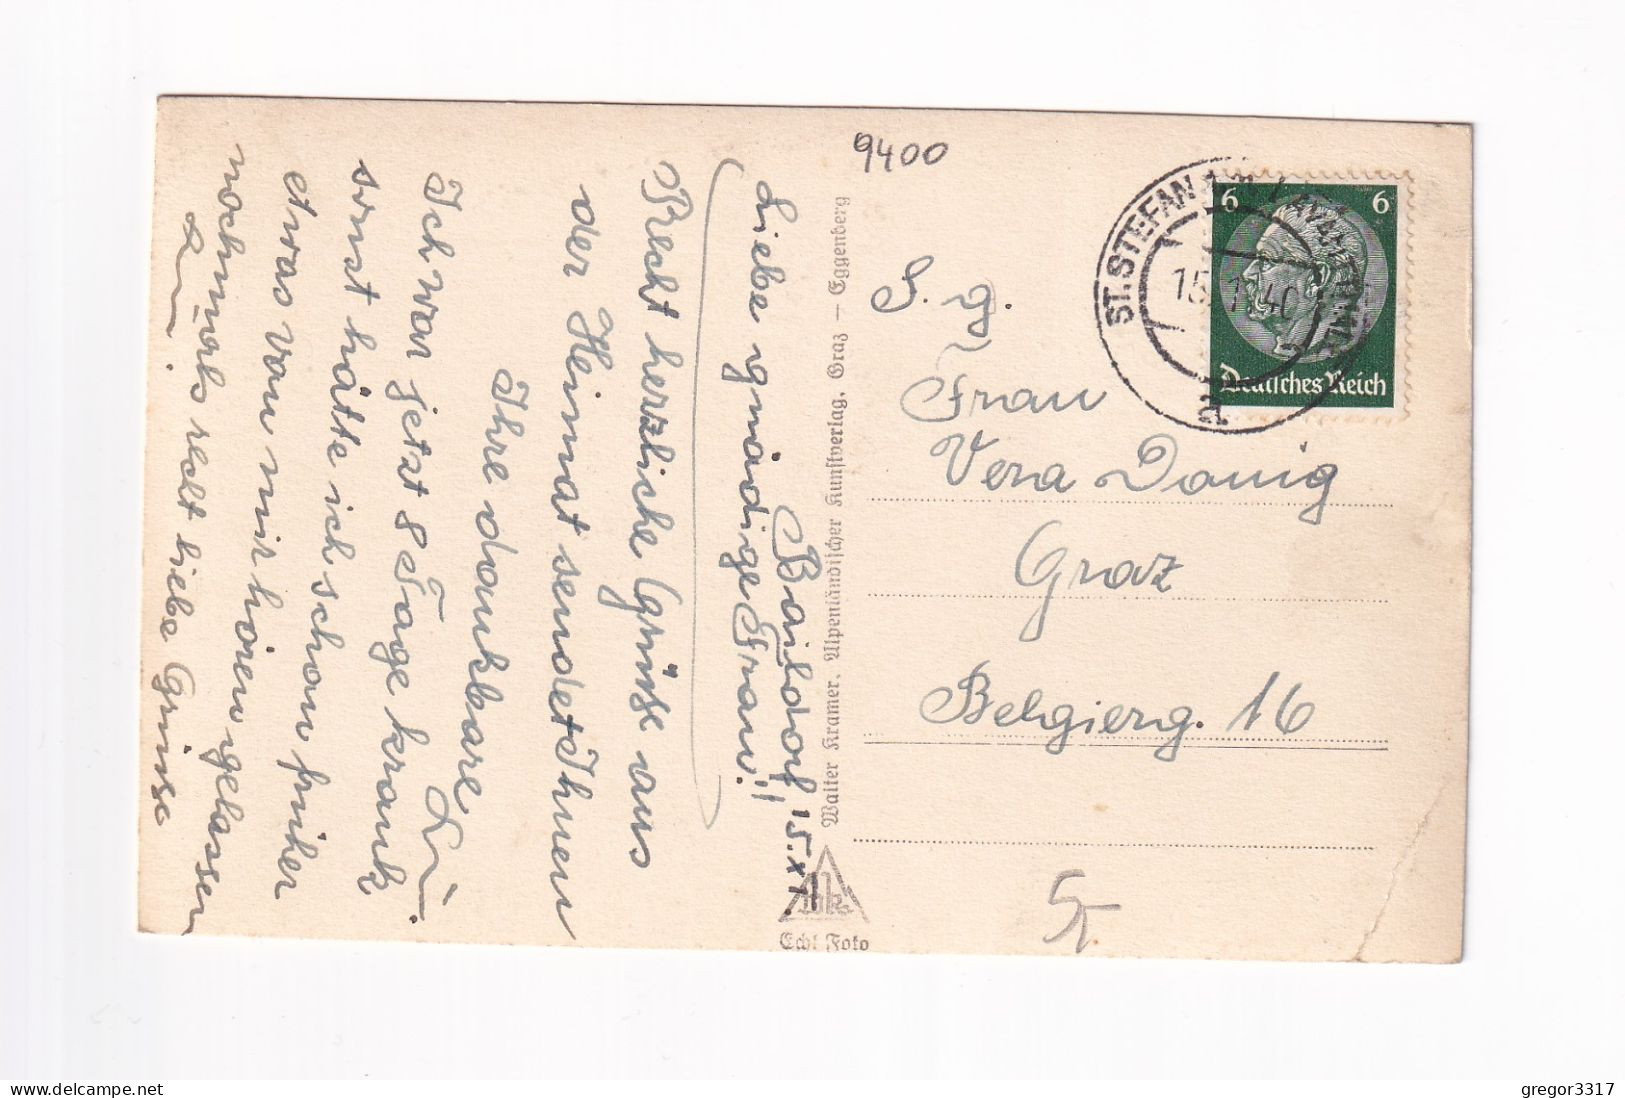 9400
ST. STEFAN
15. 11. 40
a
6 6
Deutsches Reich
Baildorf, 15. XI.
Liebe gnädige Frau!!
Recht herzliche Grüße aus
der Heimat sendet Ihnen
Ihre dankbare
Ich war jetzt 8 Tage krank
sonst hätte ich schon früher
etwas von mir hören gelassen
nochmals recht liebe Grüsse
Walter Kramer, Alpenländischer Kunstverlag, Graz – Eggenberg
Echt Foto
S. g.
Frau
Vera Danig
Graz
Belgierg. 16
5
gregor3317